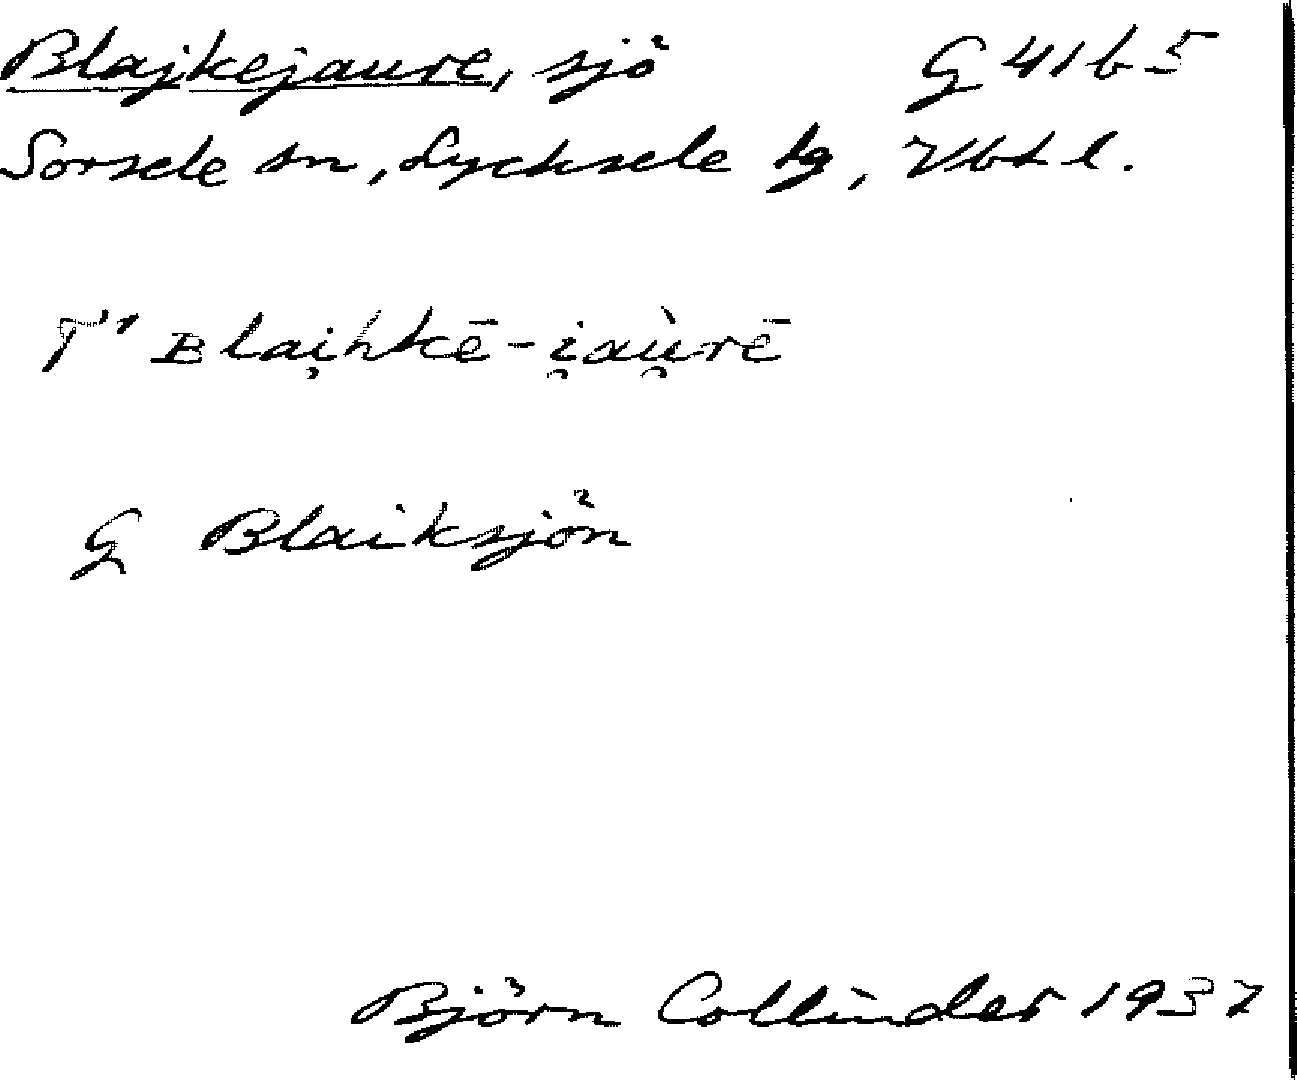 Blajkejaure, sjö G 41 b 5
Sorsele sn, Lycksele lg, Vbtl.
T'' ʙlai̯hkē-i̯aù̯rē
G Blaiksjön
Björn Collinder 1937